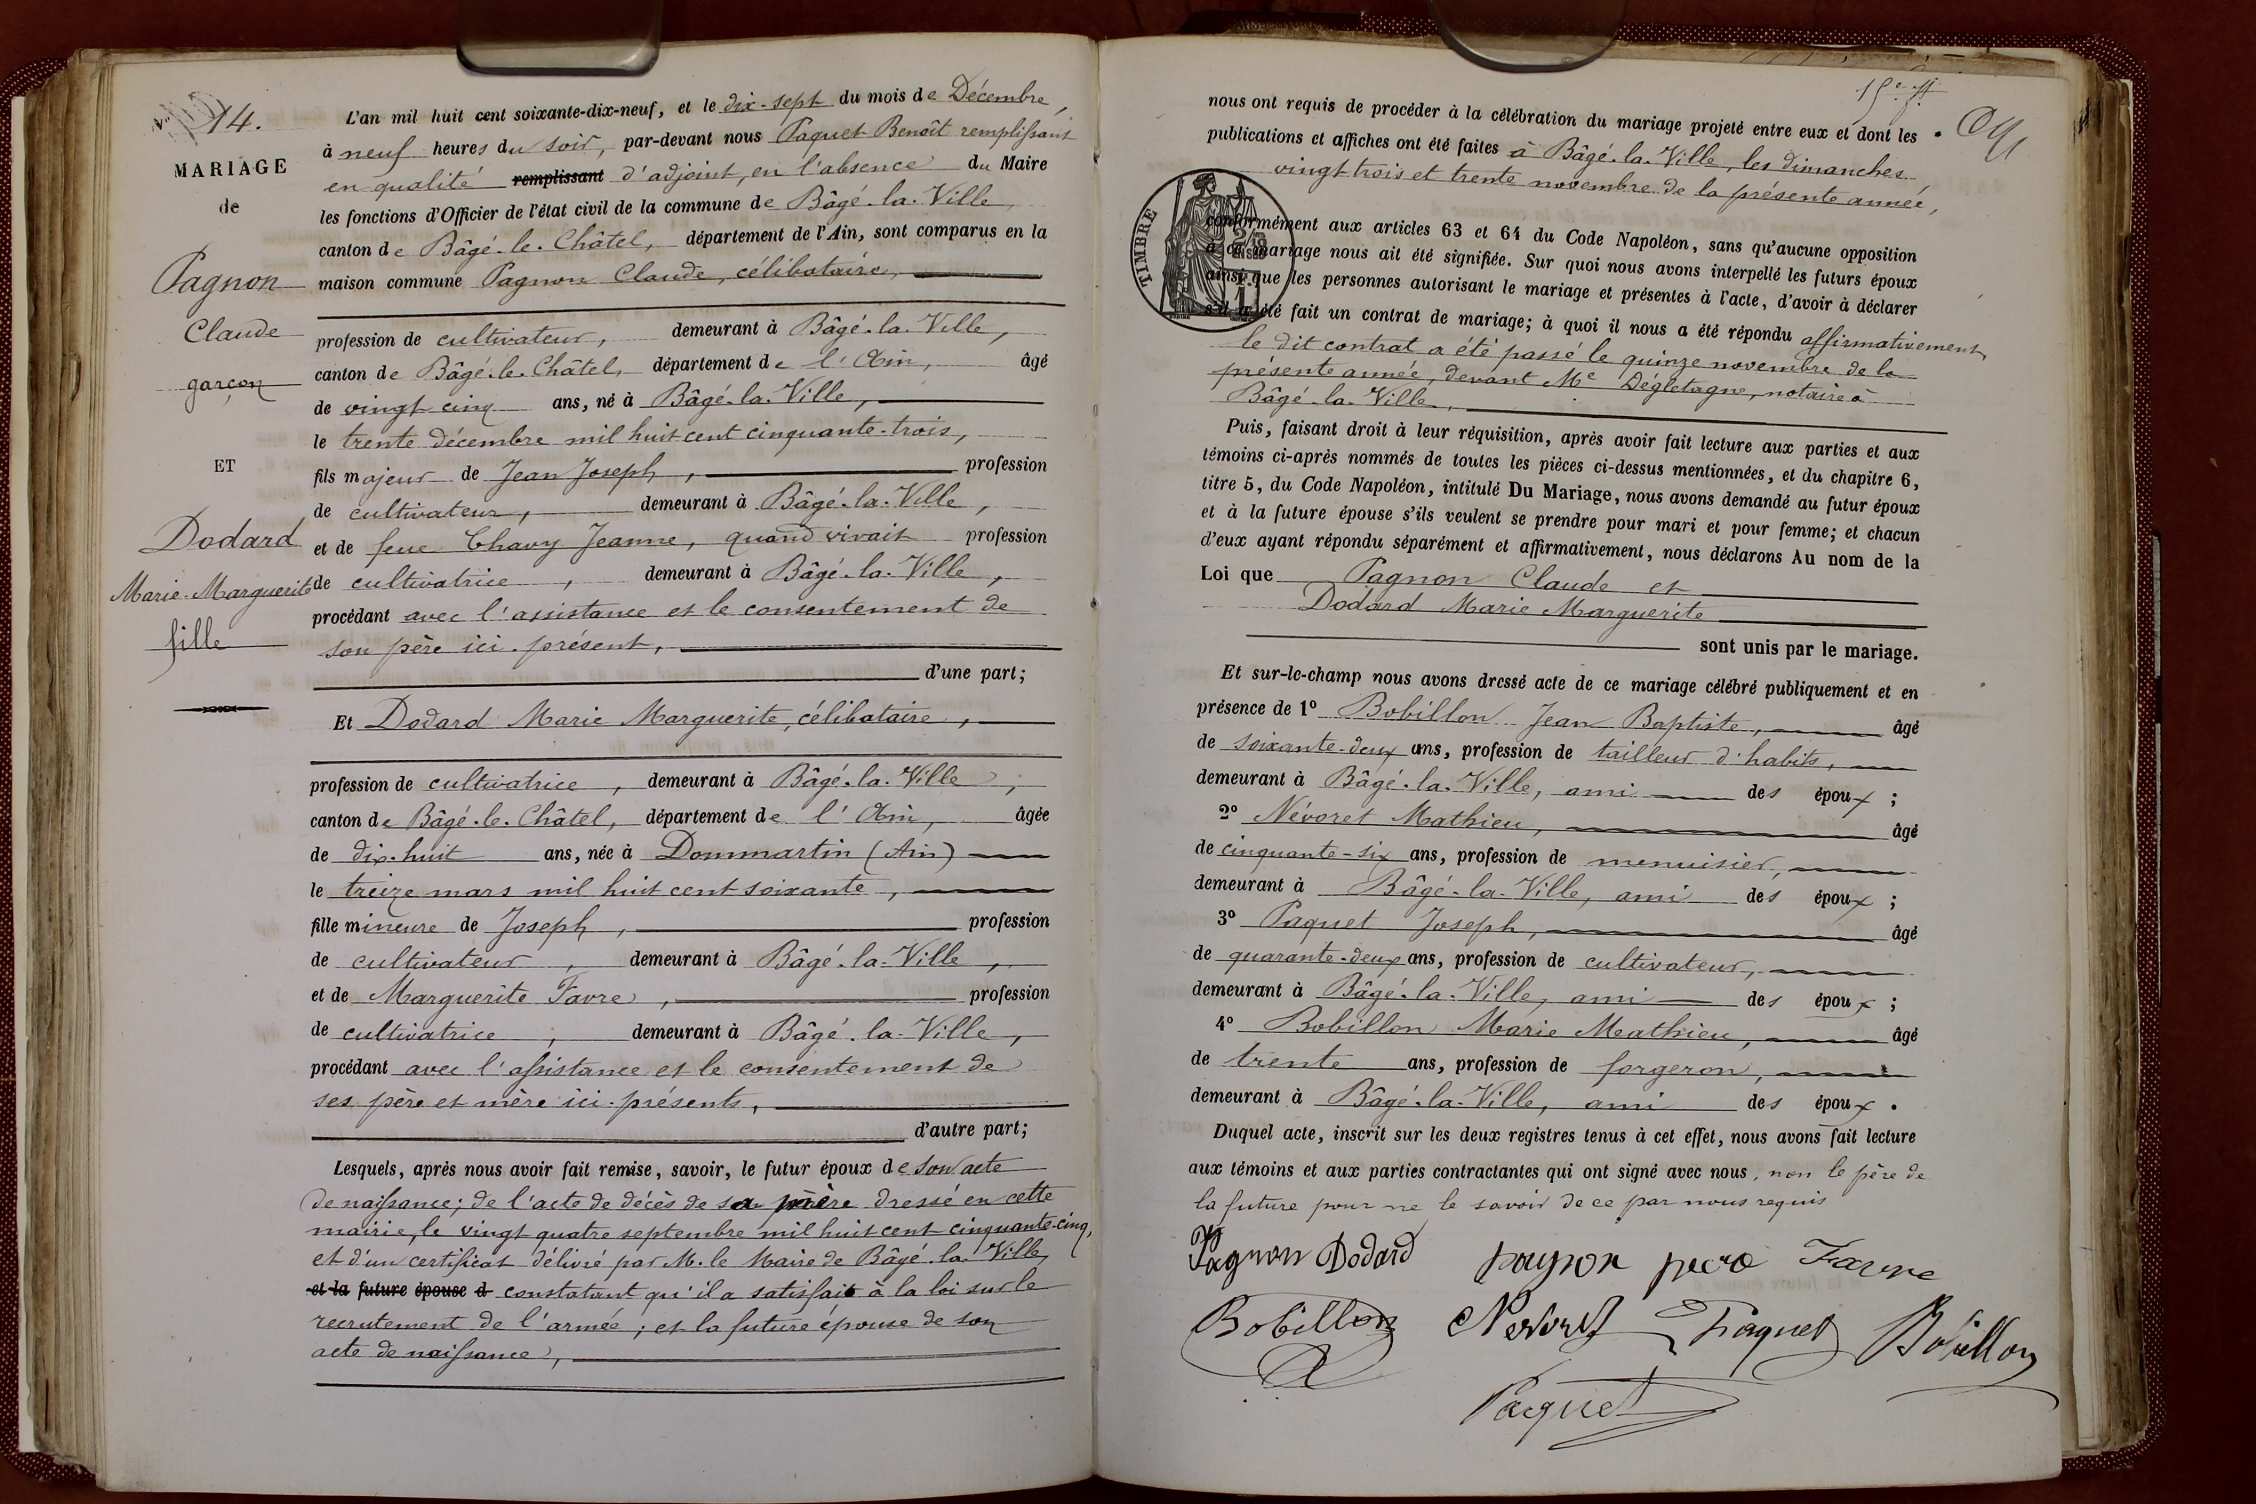 14.
MARIAGE
de
Pagnon
Claude
garçon
ET
Dodard
Marie-Marguerite
fille
L'an mil huit cent soixante-dix-neuf, et le dix-sept du mois de Décembre,
à neuf heures du soir, par-devant nous Paquet Benoît remplissant
en qualité remplissant d'adjoint, en l'absence du Maire
les fonctions d'Officier de l'état civil de la commune de Bâgé-la-Ville,
canton de Bâgé-le-Châtel, département de l'Ain, sont comparus en la
maison commune Pagnon Claude, célibataire,
profession de cultivateur, demeurant à Bâgé-la-Ville,
canton de Bâgé-le-Châtel, département de l'Ain, âgé
de vingt-cinq ans, né à Bâgé-la-Ville,
le trente décembre mil huit cent cinquante-trois,
fils majeur de Jean Joseph, profession
de cultivateur, demeurant à Bâgé-la-Ville,
et de feue Chavy Jeanne, quand vivait profession
de cultivatrice, demeurant à Bâgé-la-Ville,
procédant avec l'assistance et le consentement de
son père ici présent,
d'une part;
Et Dodard Marie Marguerite, célibataire,
profession de cultivatrice, demeurant à Bâgé-la-Ville,
canton de Bâgé-le-Châtel, département de l'Ain, âgée
de dix-huit ans, née à Dommartin (Ain)
le treize mars mil huit cent soixante,
fille mineure de Joseph, profession
de cultivateur, demeurant à Bâgé-la-Ville,
et de Marguerite Favre, profession
de cultivatrice, demeurant à Bâgé-la-Ville,
procédant avec l'assistance et le consentement de
ses père et mère ici présents,
d'autre part;
Lesquels, après nous avoir fait remise, savoir, le futur époux de son acte
de naissance; de l'acte de décès de sa mère dressé en cette
mairie, le vingt quatre septembre mil huit cent cinquante-cinq,
et d'un certificat délivré par M. le Maire de Bâgé-la-Ville,
et la future épouse d constatant qu'il a satisfait à la loi sur le
recrutement de l'armée; et la future épouse de son
acte de naissance,
15e ff
nous ont requis de procéder à la célébration du mariage projeté entre eux et dont les
publications et affiches ont été faites à Bâgé-la-Ville, les dimanches
vingt trois et trente novembre de la présente année,
TIMBRE
conformément aux articles 63 et 64 du Code Napoléon, sans qu'aucune opposition
à ce mariage nous ait été signifiée. Sur quoi nous avons interpellé les futurs époux
ainsi que les personnes autorisant le mariage et présentes à l'acte, d'avoir à déclarer
s'il a été fait un contrat de mariage; à quoi il nous a été répondu affirmativement,
le dit contrat a été passé le quinze novembre de la
présente année, devant Me Dégletagne, notaire à
Bâgé-la-Ville,
Puis, faisant droit à leur réquisition, après avoir fait lecture aux parties et aux
témoins ci-après nommés de toutes les pièces ci-dessus mentionnées, et du chapitre 6,
titre 5, du Code Napoléon, intitulé Du Mariage, nous avons demandé au futur époux
et à la future épouse s'ils veulent se prendre pour mari et pour femme; et chacun
d'eux ayant répondu séparément et affirmativement, nous déclarons Au nom de la
Loi que Pagnon Claude et
Dodard Marie Marguerite
sont unis par le mariage.
Et sur-le-champ nous avons dressé acte de ce mariage célébré publiquement et en
présence de 1º Bobillon Jean Baptiste, âgé
de soixante-deux ans, profession de tailleur d'habits,
demeurant à Bâgé-la-Ville, ami des époux;
2º Névoret Mathieu, âgé
de cinquante-six ans, profession de menuisier,
demeurant à Bâgé-la-Ville, ami des époux;
3º Paquet Joseph, âgé
de quarante-deux ans, profession de cultivateur,
demeurant à Bâgé-la-Ville, ami des époux;
4º Bobillon Marie Mathieu, âgé
de trente ans, profession de forgeron,
demeurant à Bâgé-la-Ville, ami des époux.
Duquel acte, inscrit sur les deux registres tenus à cet effet, nous avons fait lecture
aux témoins et aux parties contractantes qui ont signé avec nous, non le père de
la future pour ne le savoir de ce par nous requis
Pagnon Dodard pagnon pere Favre
Bobillon Nevoret Paquet Bobillon
Paquet